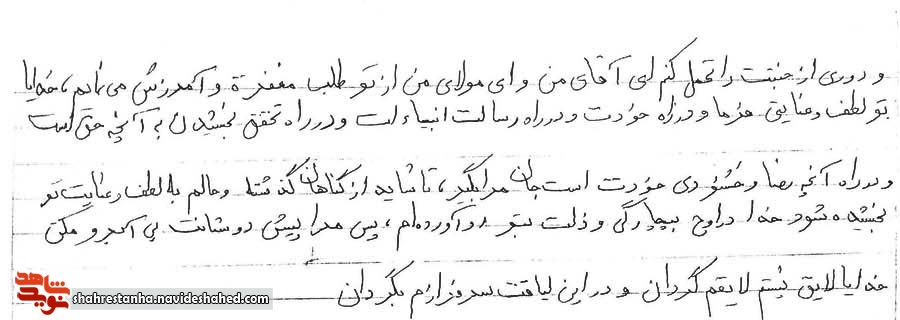 و دوری از جنبت را تحمل کنم ای آقای من و ای مولای من از تو طلب مغفرة و آمرزش می نمایم، خدایا
تو لطف و عنایتی فرما و در راه خودت و در راه رسالت انبیاءات و در راه تحقق بخشیدن به آنچه حق است
و در راه آنچه رضا و خشنودی خودت است جان مرا بگیر، تا شاید از گناهان گذشته و حالم به لطف و عنایت تو
بخشیده شود خدا در اوج بیچارگی و ذلت بتو رو آورده‌ام، پس مرا پیش دوستانت بی آبرو مکن
خدایا لایق نیستم لایقم گردان و در این لیاقت سرفرازم بگردان
شاهد
نوید
shahrestanha.navideshahed.com